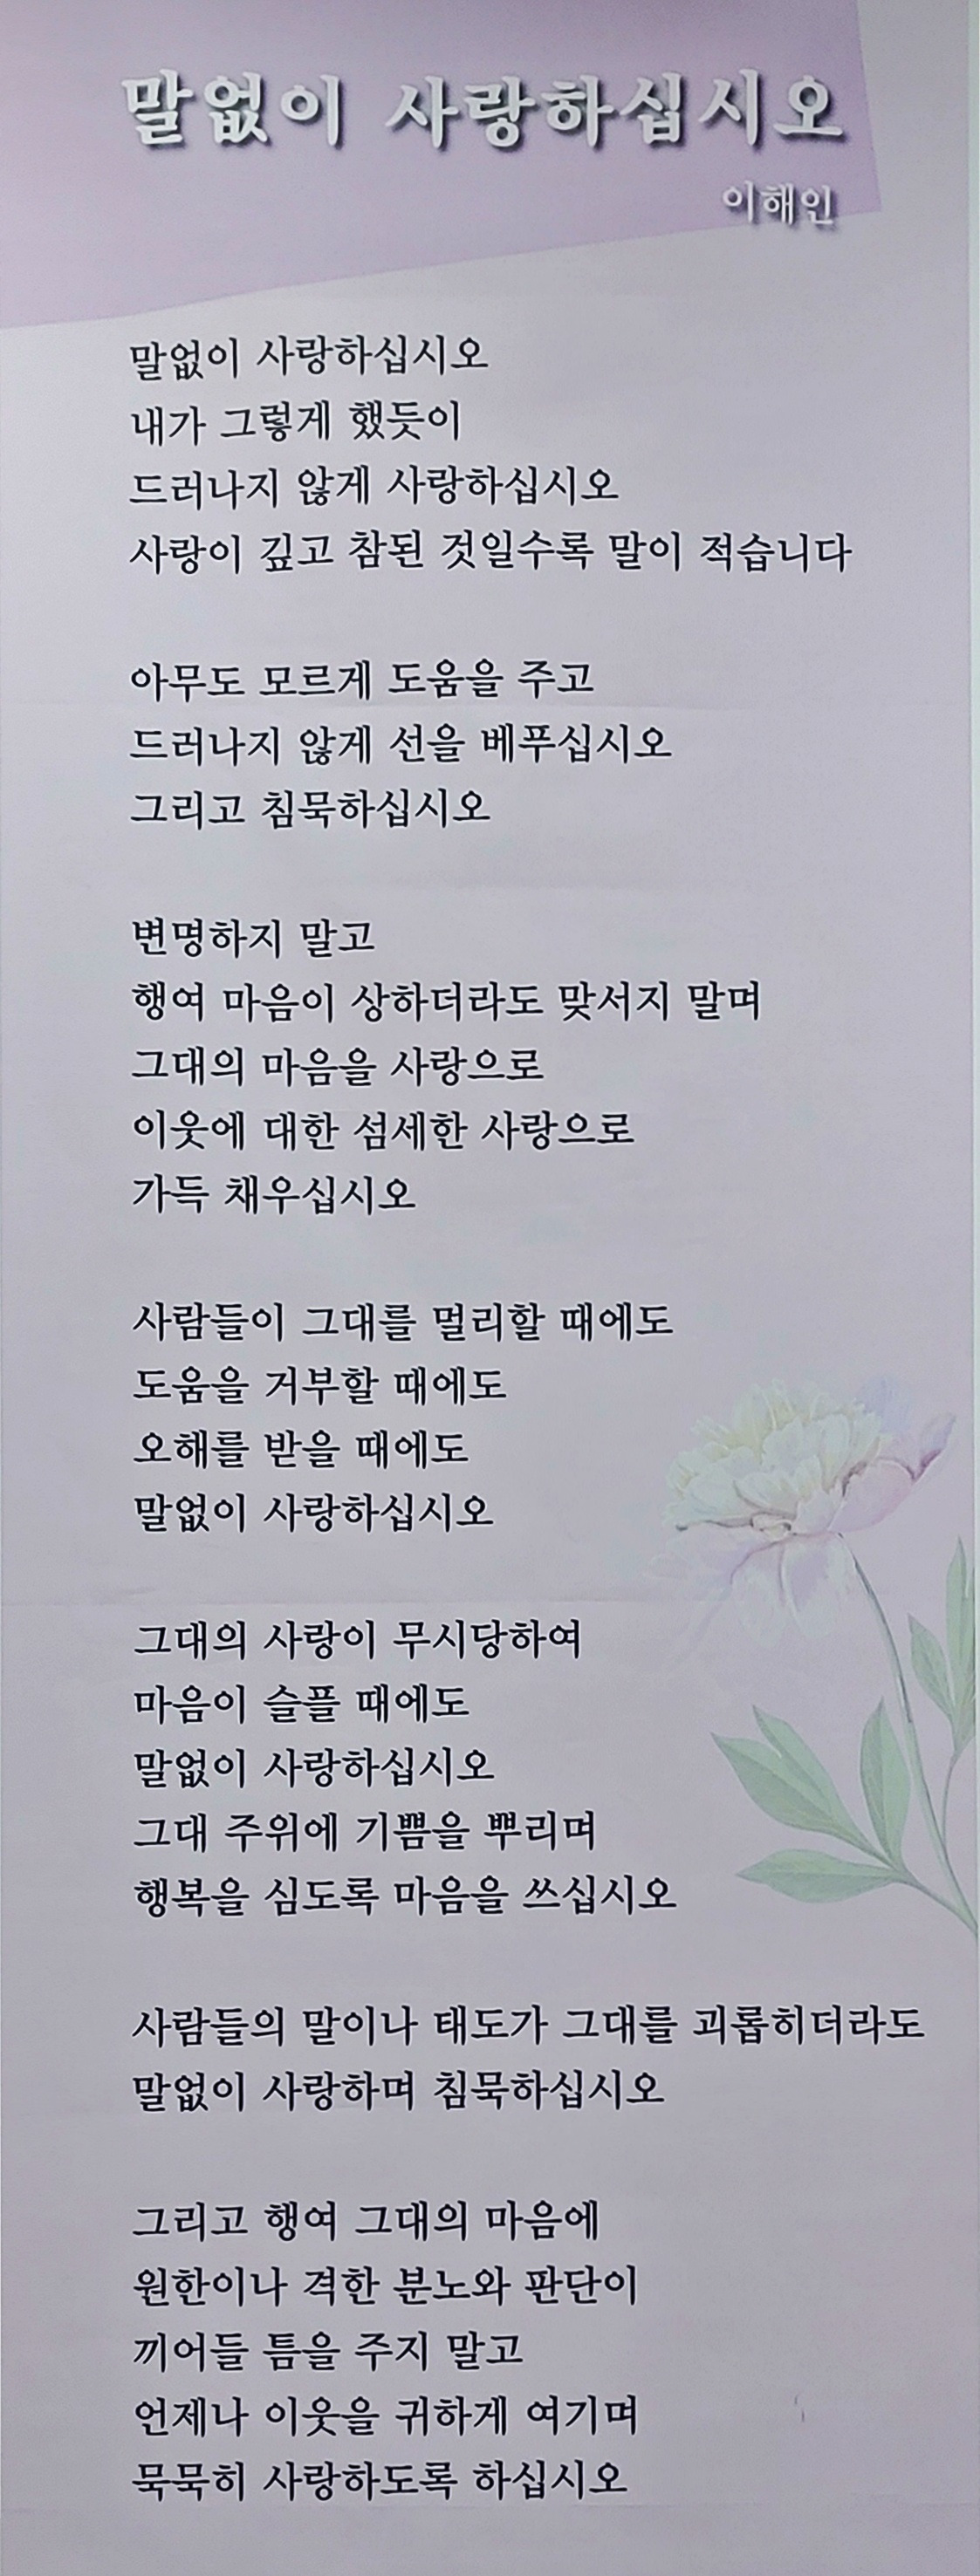 말없이 사랑하십시오
이해인
말없이 사랑하십시오
내가 그렇게 했듯이
드러나지 않게 사랑하십시오
사랑이 깊고 참된 것일수록 말이 적습니다
아무도 모르게 도움을 주고
드러나지 않게 선을 베푸십시오
그리고 침묵하십시오
변명하지 말고
행여 마음이 상하더라도 맞서지 말며
그대의 마음을 사랑으로
이웃에 대한 섬세한 사랑으로
가득 채우십시오
사람들이 그대를 멀리할 때에도
도움을 거부할 때에도
오해를 받을 때에도
말없이 사랑하십시오
그대의 사랑이 무시당하여
마음이 슬플 때에도
말없이 사랑하십시오
그대 주위에 기쁨을 뿌리며
행복을 심도록 마음을 쓰십시오
사람들의 말이나 태도가 그대를 괴롭히더라도
말없이 사랑하며 침묵하십시오
그리고 행여 그대의 마음에
원한이나 격한 분노와 판단이
끼어들 틈을 주지 말고
언제나 이웃을 귀하게 여기며
묵묵히 사랑하도록 하십시오